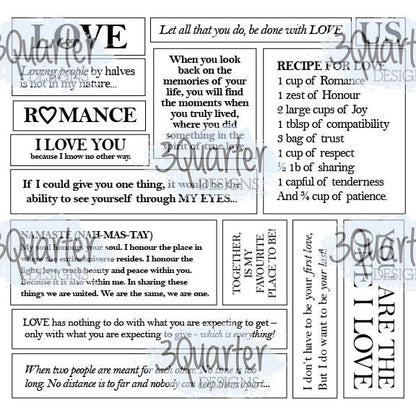 LOVE
Let all that you do, be done with LOVE
US
Loving people by halves
is not in my nature...
R♡MANCE
I LOVE YOU
because I know no other way.
When you look
back on the
memories of your
life, you will find
the moments when
you truly lived,
where you did
something in the
spirit of true love.
RECIPE FOR LOVE
1 cup of Romance
1 zest of Honour
2 large cups of Joy
1 tblsp of compatibility
3 bag of trust
1 cup of respect
½ lb of sharing
1 capful of tenderness
And ¾ cup of patience.
If I could give you one thing, it would be the
ability to see yourself through MY EYES...
NAMASTÉ (NAH-MAS-TAY)
My soul honours your soul. I honour the place in
where the entire universe resides. I honour the
light, love, truth beauty and peace within you.
Because it is also within me. In sharing these
things we are united. We are the same, we are one.
TOGETHER,
IS MY
FAVOURITE
PLACE TO BE!
I don't have to be your first love,
But I do want to be your last!
YOU ARE THE
ONE I LOVE
LOVE has nothing to do with what you are expecting to get –
only with what you are expecting to give - which is everything!
When two people are meant for each other. No time is too
long. No distance is to far and nobody can keep them apart...
3Quarter
DESIGNS
3Quarter
DESIGNS
3Quarter
DESIGNS
3Quarter
DESIGNS
3Quarter
DESIGNS
3Quarter
DESIGNS